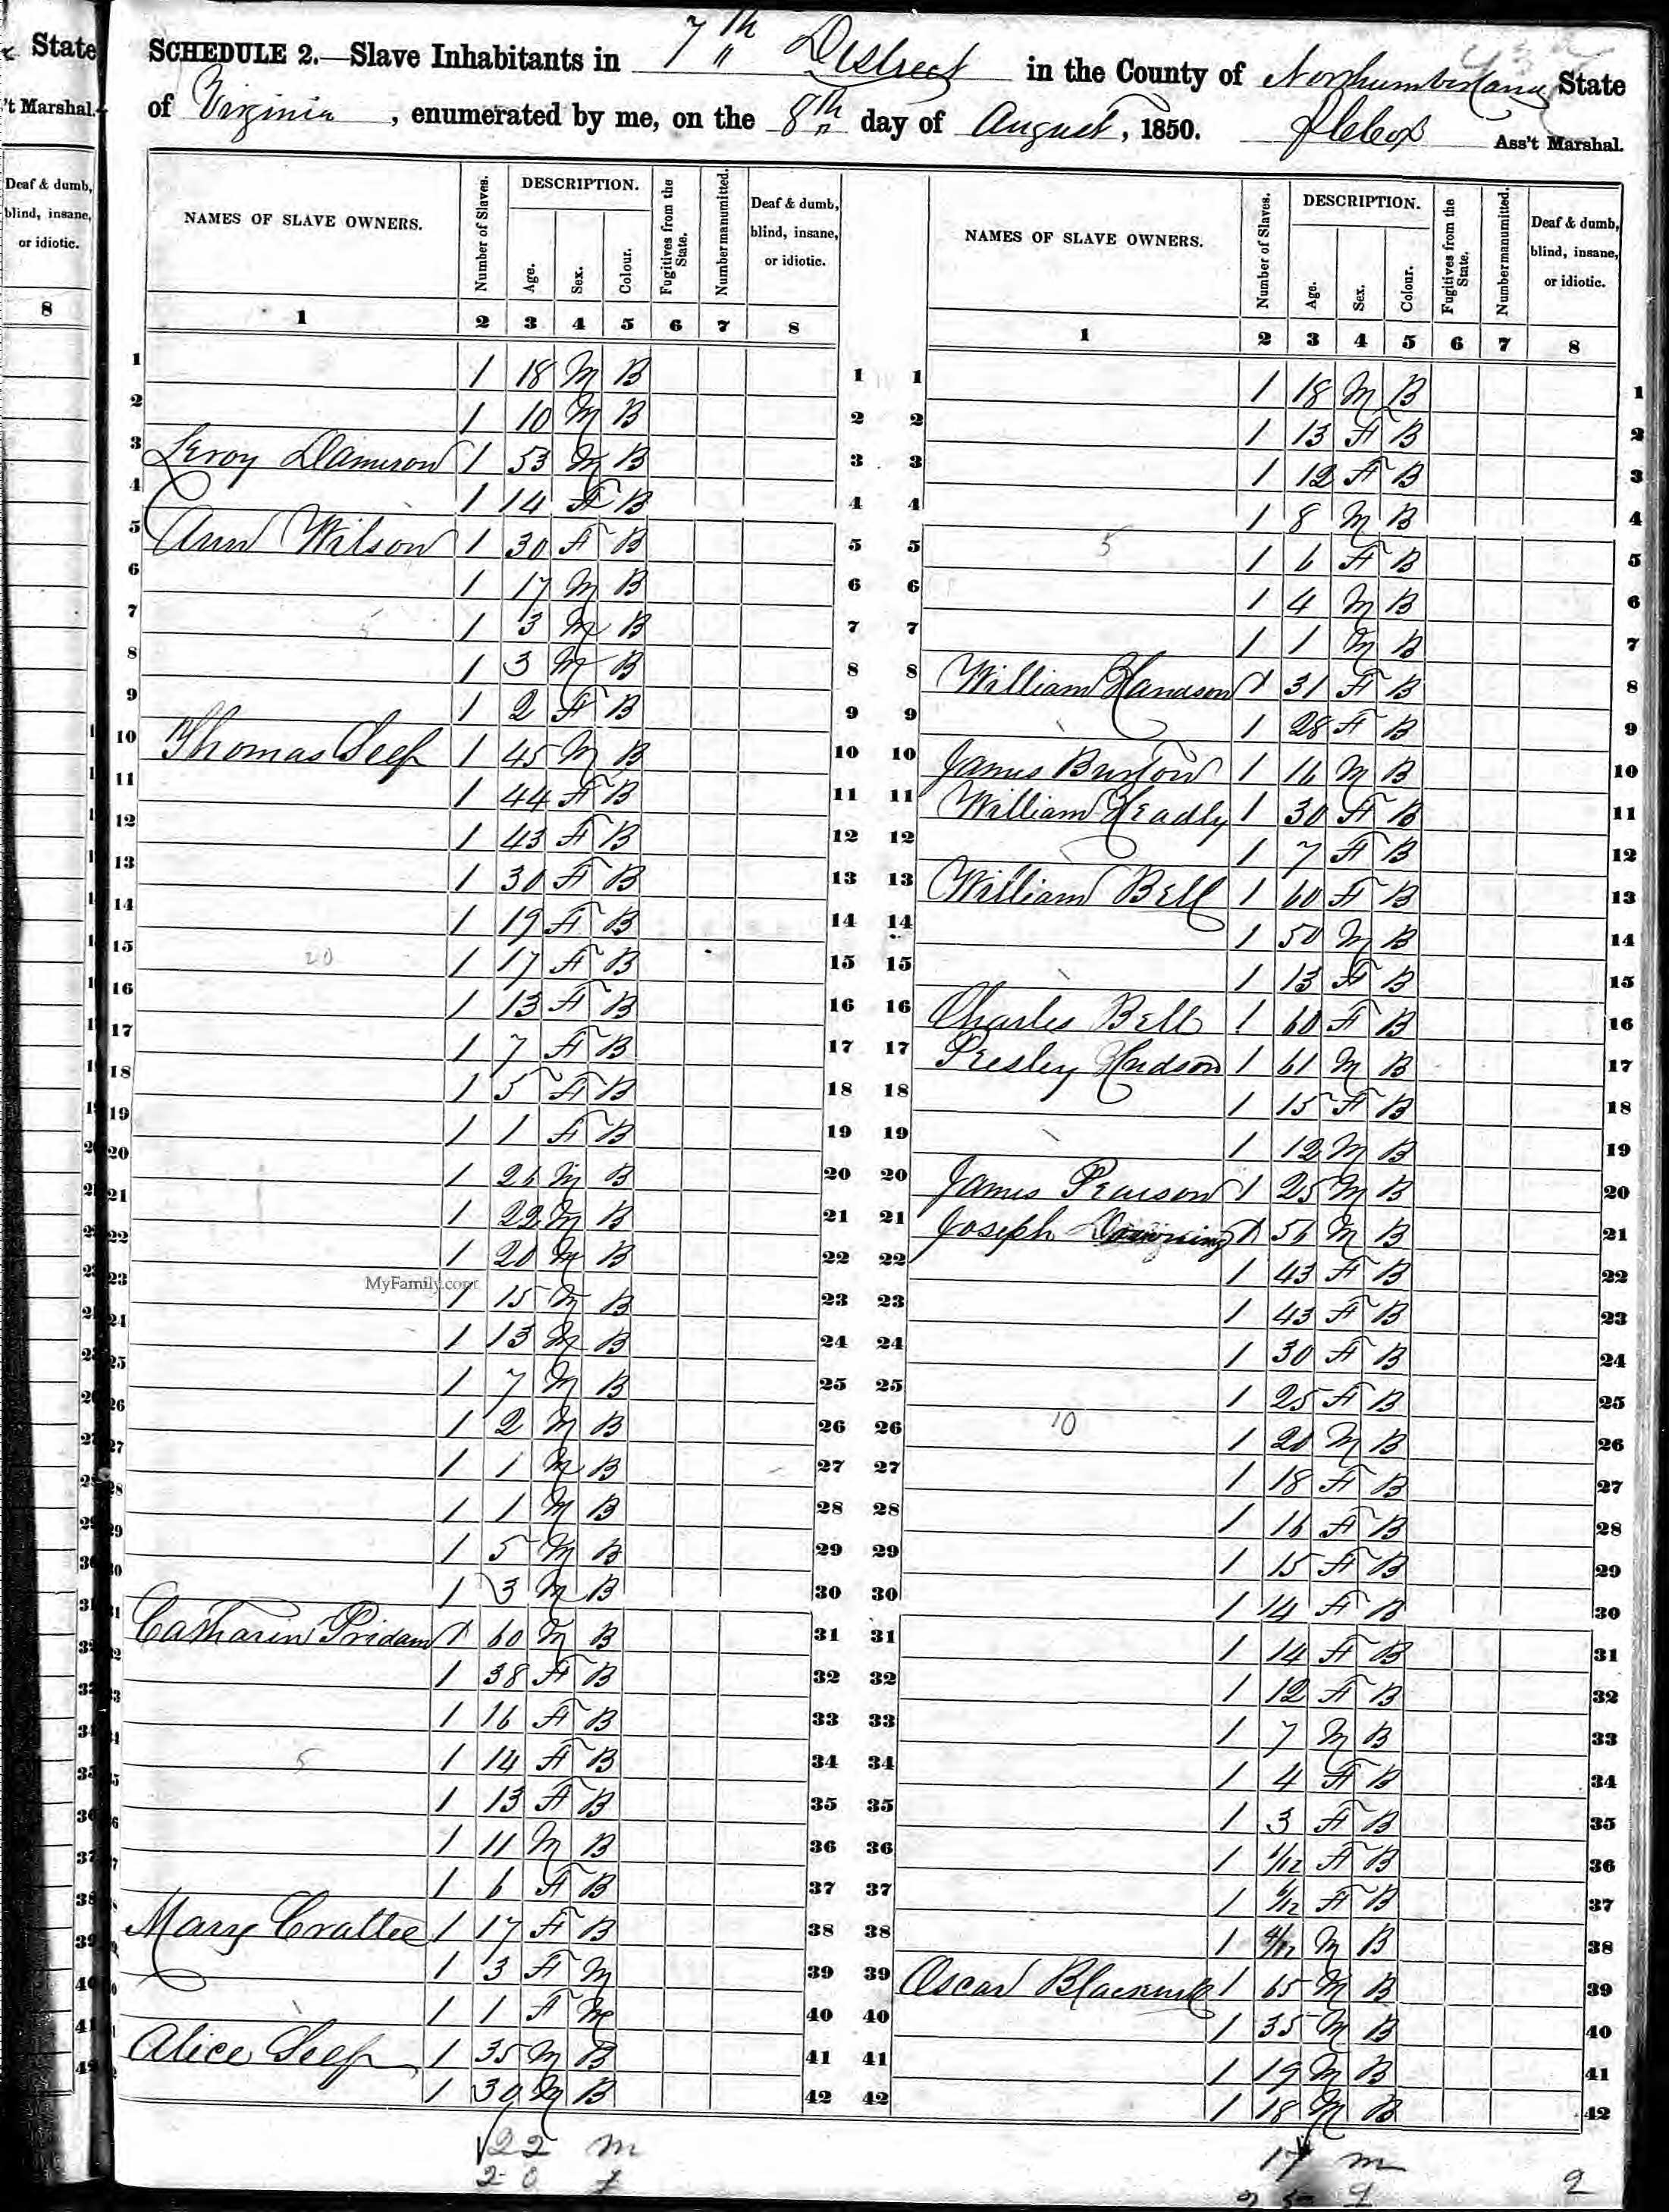 State
't Marshal.
Deaf & dumb,
blind, insane,
or idiotic.
8
SCHEDULE 2.—Slave Inhabitants in 7th District in the County of Northumberland State
of Virginia, enumerated by me, on the 8th day of August, 1850. Ass't Marshal.
NAMES OF SLAVE OWNERS. Number of Slaves. DESCRIPTION. Age. Sex. Colour. Fugitives from the State. Number manumitted. Deaf & dumb, blind, insane, or idiotic.
1 2 3 4 5 6 7 8
1 1 18 M B 1
2 1 10 M B 2
3 Leroy Dameron 1 53 M B 3
4 1 14 F B 4
5 Ann Wilson 1 30 F B 5
6 1 17 M B 6
7 1 3 M B 7
8 1 3 M B 8
9 1 2 F B 9
10 Thomas 1 45 M B 10
11 1 44 F B 11
12 1 43 F B 12
13 1 30 F B 13
14 1 19 F B 14
15 20 1 17 F B 15
16 1 13 F B 16
17 1 7 F B 17
18 1 5 F B 18
19 1 1 F B 19
20 1 26 M B 20
21 1 22 M B 21
22 1 20 M B 22
23 MyFamily.com 1 15 M B 23
24 1 13 M B 24
25 1 7 M B 25
26 1 2 M B 26
27 1 1 M B 27
28 1 1 M B 28
29 1 5 M B 29
30 1 3 M B 30
31 Catharin Pridam 1 60 M B 31
32 1 38 F B 32
33 1 16 F B 33
34 5 1 14 F B 34
35 1 13 F B 35
36 1 11 M B 36
37 1 6 F B 37
38 Mary 1 17 F B 38
39 1 3 F M 39
40 1 1 F M 40
41 Alice 1 35 M B 41
42 1 30 M B 42
22 m
20 f
NAMES OF SLAVE OWNERS. Number of Slaves. DESCRIPTION. Age. Sex. Colour. Fugitives from the State. Number manumitted. Deaf & dumb, blind, insane, or idiotic.
1 2 3 4 5 6 7 8
1 1 18 M B 1
2 1 13 F B 2
3 1 12 F B 3
4 1 8 M B 4
5 5 1 6 F B 5
6 1 4 M B 6
7 1 1 M B 7
8 William 1 31 F B 8
9 1 28 F B 9
10 James 1 16 M B 10
11 William Headly 1 30 F B 11
12 1 7 F B 12
13 William Bell 1 60 F B 13
14 1 50 M B 14
15 1 13 F B 15
16 Charles Bell 1 60 F B 16
17 Presley Hudson 1 61 M B 17
18 1 15 F B 18
19 1 12 M B 19
20 James Pearson 1 25 M B 20
21 Joseph Downing 1 56 M B 21
22 1 43 F B 22
23 1 43 F B 23
24 1 30 F B 24
25 1 25 F B 25
26 10 1 20 M B 26
27 1 18 F B 27
28 1 16 F B 28
29 1 15 F B 29
30 1 14 F B 30
31 1 14 F B 31
32 1 12 F B 32
33 1 7 M B 33
34 1 4 F B 34
35 1 3 F B 35
36 1 F B 36
37 1 F B 37
38 1 4/12 M B 38
39 Oscar 1 65 M B 39
40 1 35 M B 40
41 1 19 M B 41
42 1 18 M B 42
17 m
2